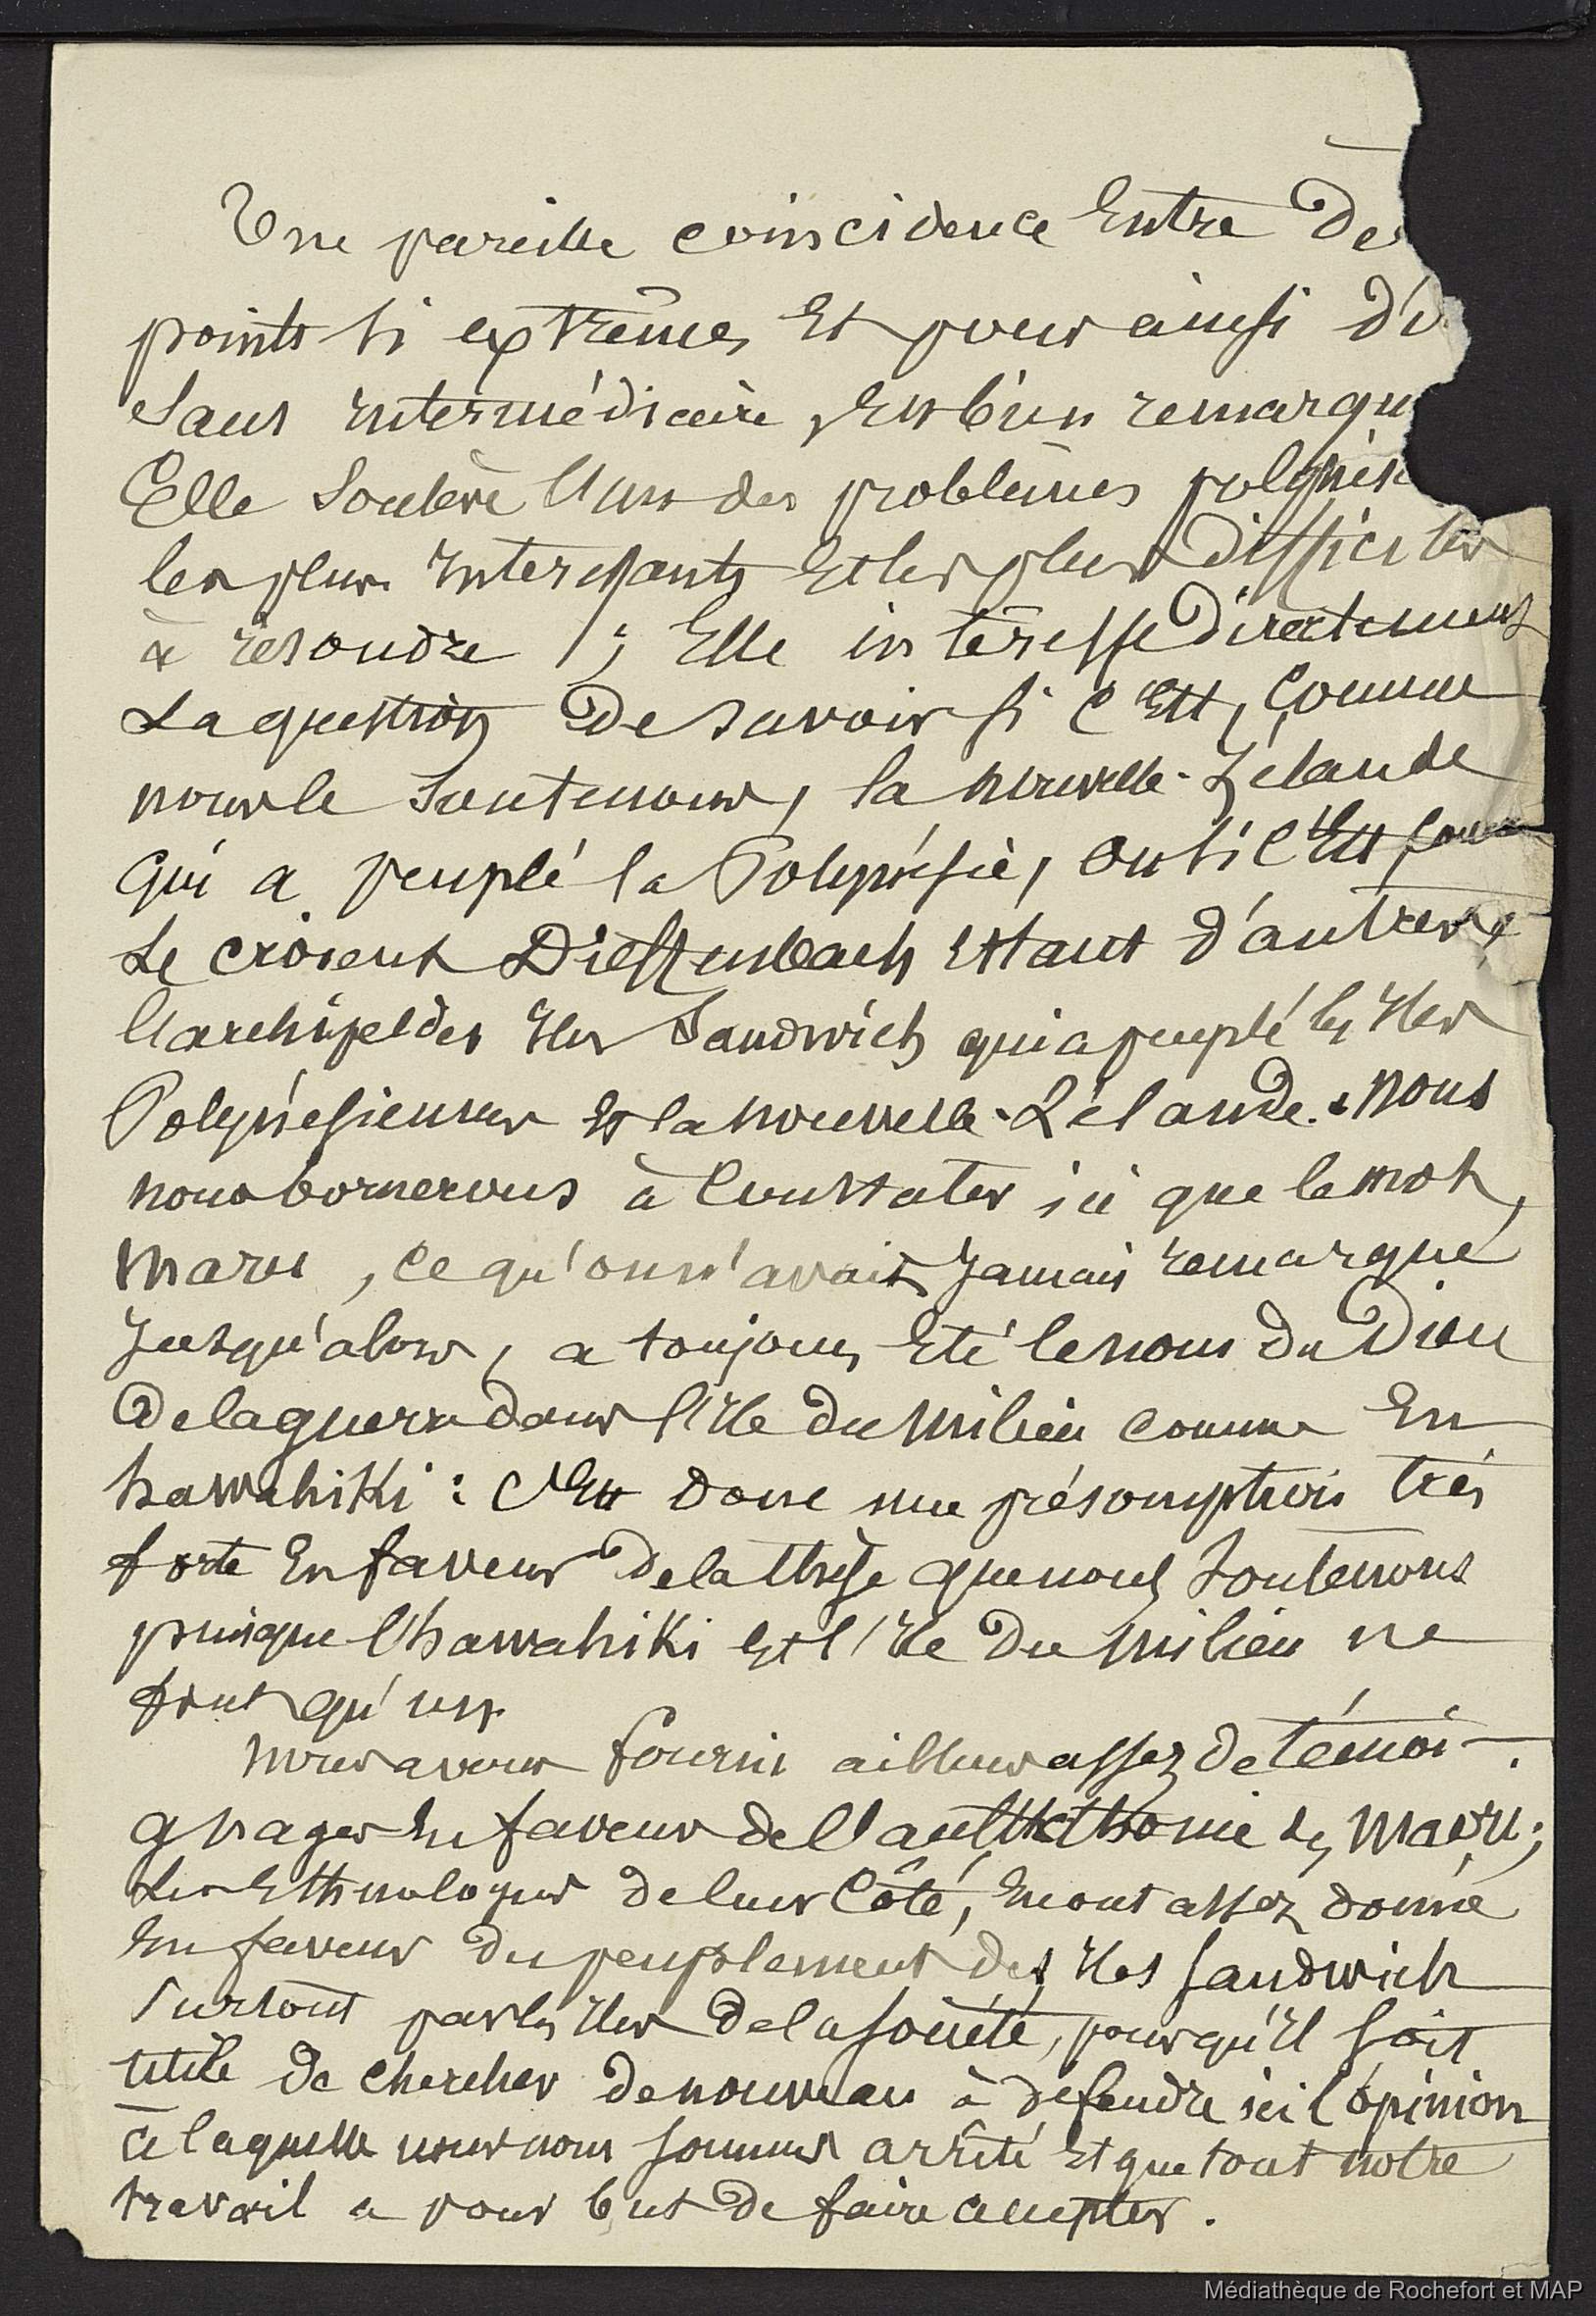 Une pareille coincidence Entre De
points si extrêmes Et pour ainsi di
sans intermédiaire, Est bien remarqu
Elle soulève l'un des problèmes polynés
les plus interessants Et les plus difficiles
à résoudre ; Elle intéresse Directement
La question De savoir si c'Est, Comme
nous le soutenons, la nouvelle-Zélande
qui a peuplé la Polynésie, ou si c'Est, comme
Le croient Dieffenbach Et tant d'autres,
l'archipel des Iles Sandwich qui a peuplé les Iles
Polynésiennes Et la nouvelle-Zélande. nous
nous bornerons à Constater ici que le mot,
maru, ce qu'on n'avait jamais remarqué
jusqu'alors, a toujours Eté le nom du Dieu
De la guerre dans l'Ile du Milieu comme En
hawahiki : C'Est donc une présomption très
forte En faveur De la thèse que nous soutenons
puisque l'hawahiki Et l'Ile Du Milieu ne
font qu'un.
nous avons fourni ailleurs assez de témoi-
gnages En faveur de l'authocthonie des maori ;
Les Ethnologues de leur Côté, En ont assez donné
En faveur du peuplement des Iles Sandwich
surtout par les Iles De la société, pour qu'il soit
utile De chercher de nouveau à défendre ici l'opinion
à laquelle nous nous sommes arrêté Et que tout notre
travail a pour but De faire accepter.
Médiathèque de Rochefort et MAP